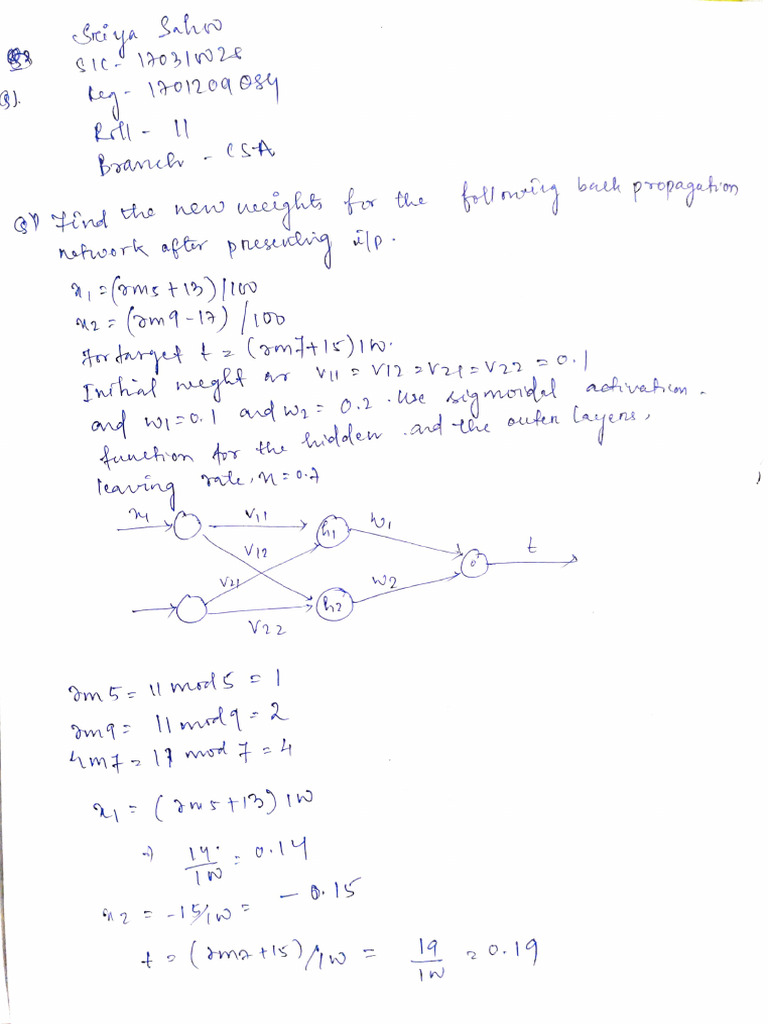 Sriya Sahoo
SIC - 170310028
Q).
Reg - 1701209084
Roll - 11
Branch - CSA
Q1) Find the new weights for the following back propagation
network after presenting i/p.
x1 = (rm5 + 13)/100
x2 = (rm9 - 17) /100
For target t = (rm7 + 15)/100.
Initial weght ar V11 = V12 = V21 = V22 = 0.1
and W1 = 0.1 and W2 = 0.2. Use sigmoidal activation
function for the hidden and the outer layers,
learning rate, n = 0.7
x1 V11 h1 W1
V12 o t
V21 W2
h2
V22
rm5 = 11 mod 5 = 1
rm9 = 11 mod 9 = 2
rm7 = 11 mod 7 = 4
x1 = (rm5 + 13)/100
⇒ 14/100 = 0.14
x2 = -15/100 = -0.15
t = (rm7 + 15)/100 = 19/100 = 0.19